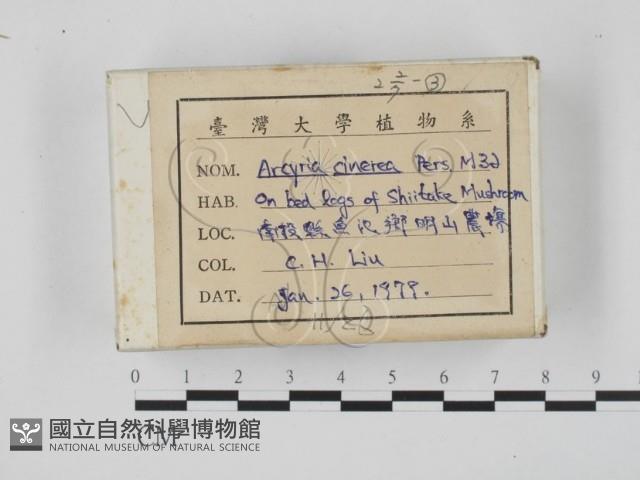 2 2/7 - ③
臺灣大學植物系
NOM. Arcyria cinerea Pers M32
HAB. On bed logs of Shiitake Mushroom
LOC. 南投縣魚池鄉明山農場
COL. C. H. Liu
DAT. Jan. 26, 1979.
0 1 2 3 4 5 6 7 8 9
CM
國立自然科學博物館
NATIONAL MUSEUM OF NATURAL SCIENCE